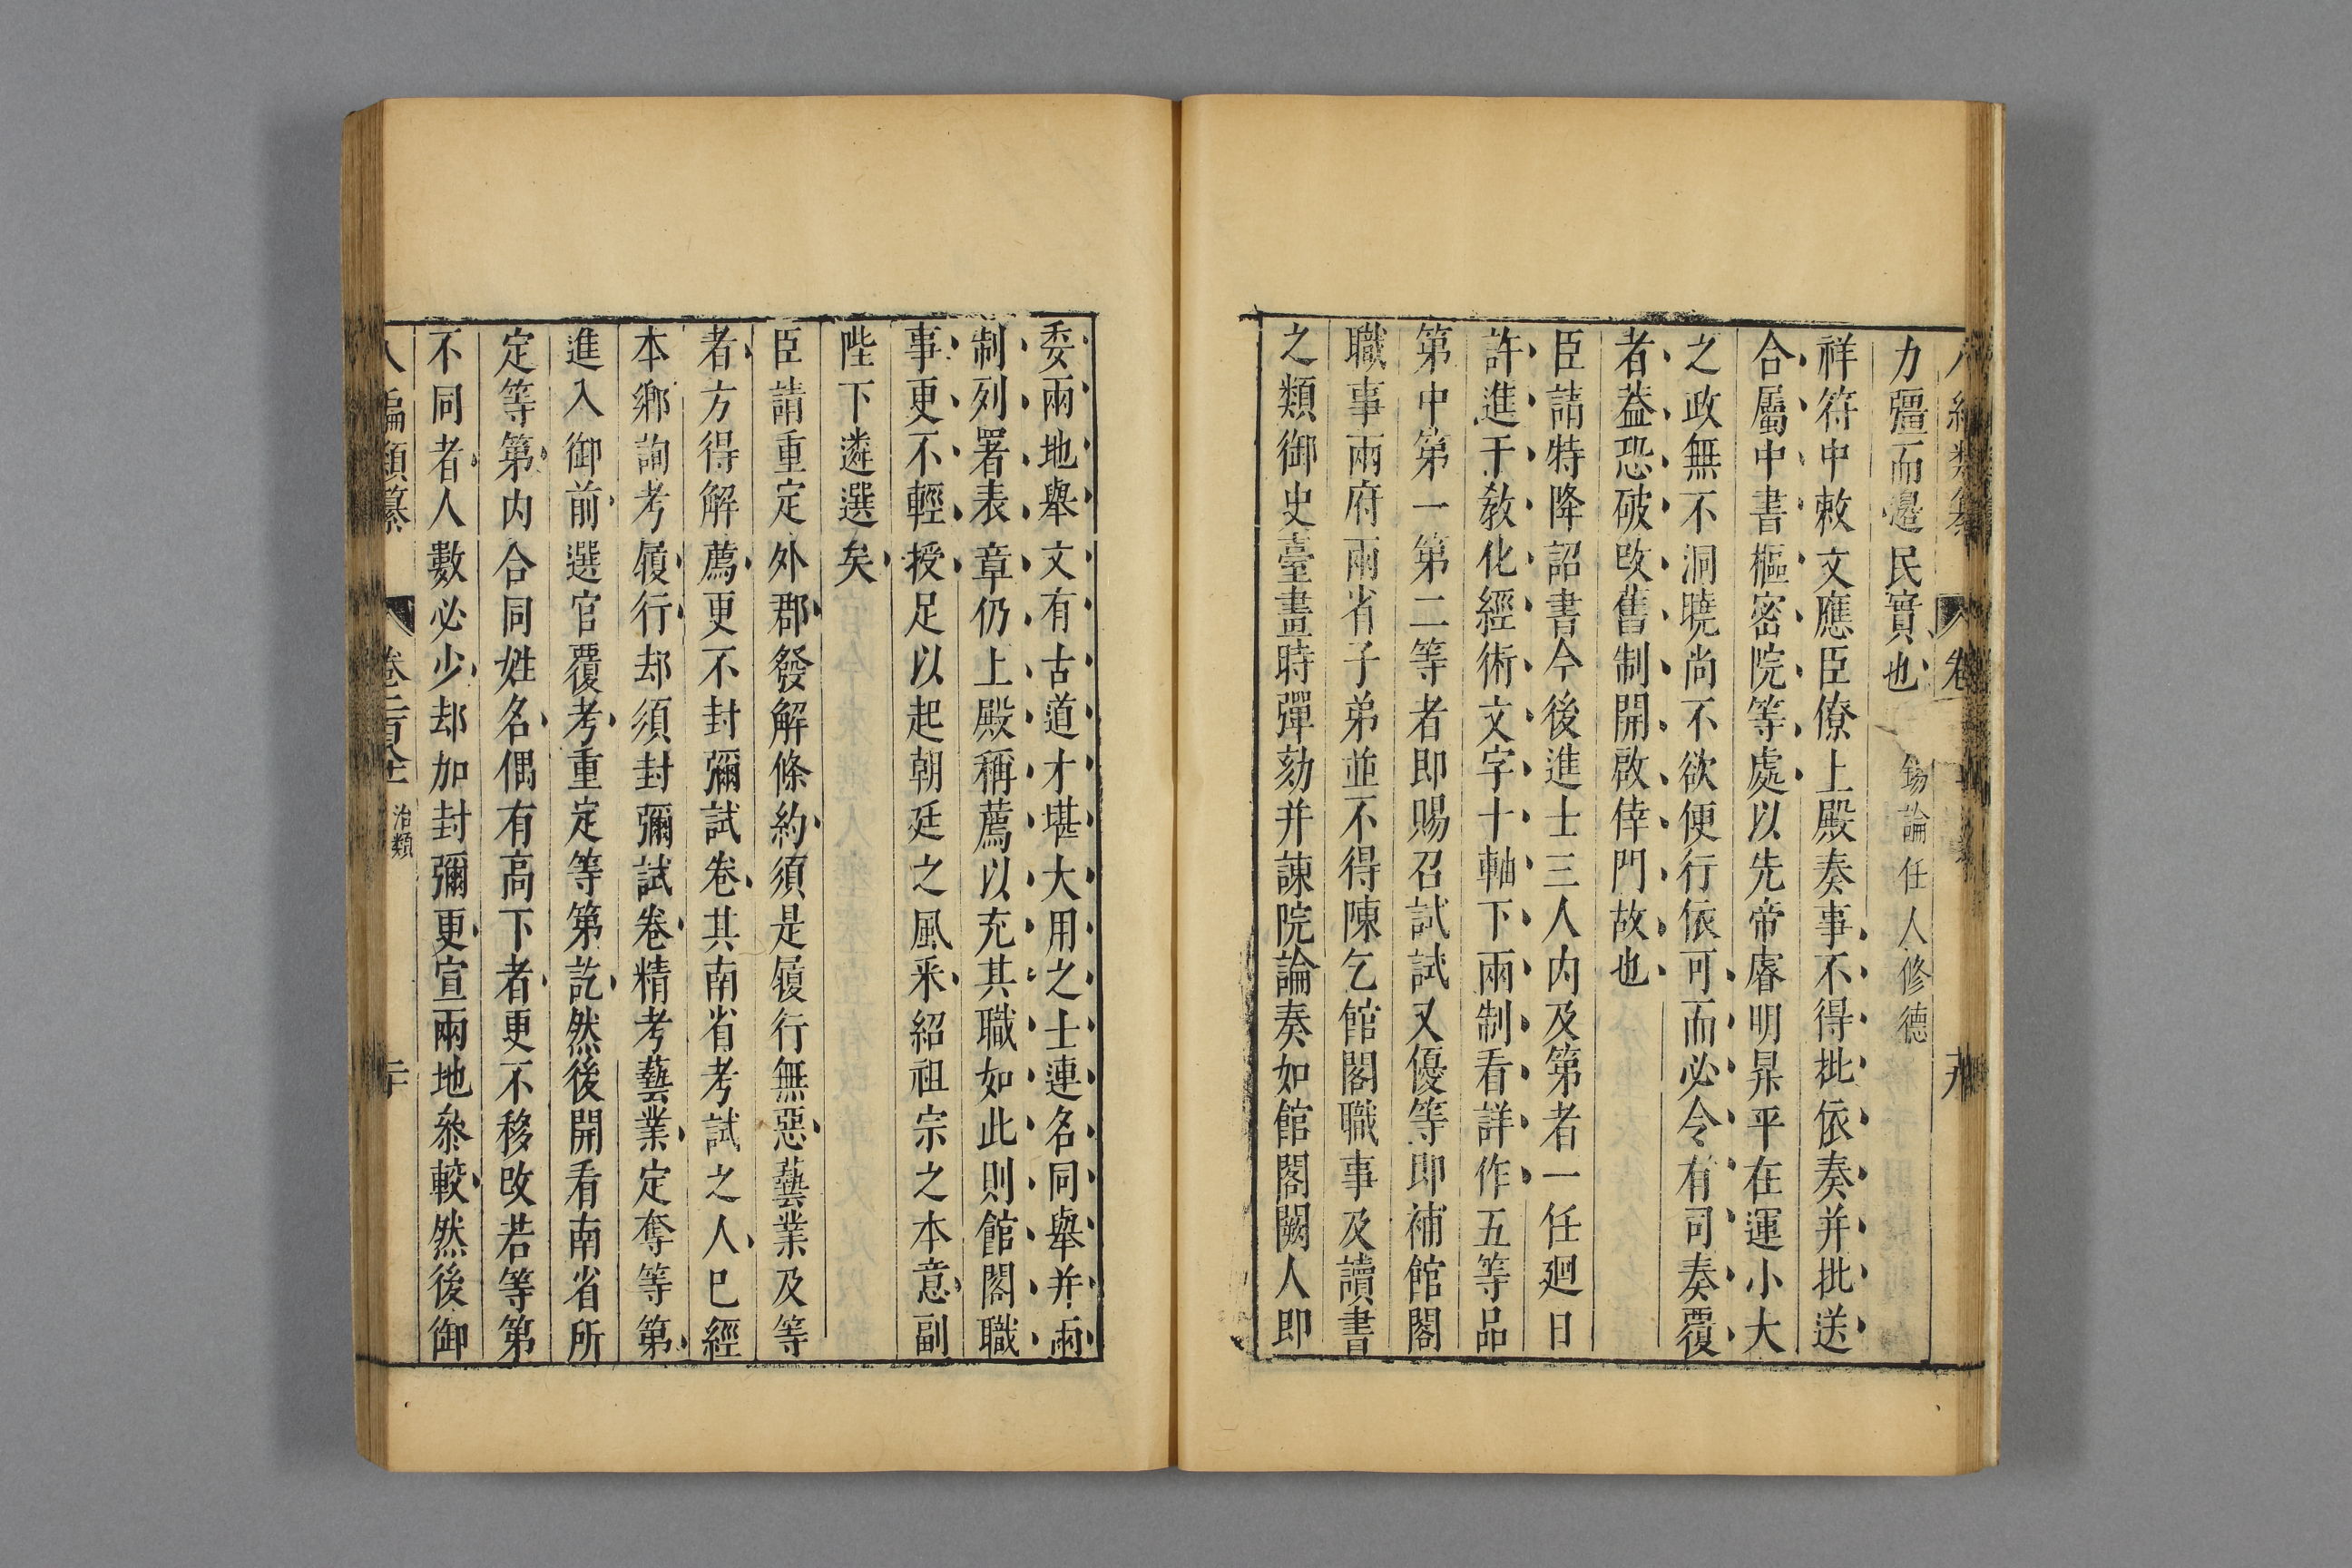 力彊而邊民實也 錫論任人修德
祥符中敕文應臣僚上殿奏事不得批依奏并批送
合屬中書樞密院等處以先帝睿明杲平在運小大
之政無不洞曉尚不欲便行依可而必令有司奏覆
者葢恐破改舊制開啟倖門故也
臣請特降詔書今後進士三人内及第者一任廻日
許進于敎化經術文字十軸下兩制看詳作五等品
第中第一第二等者即賜召試試又優等即補館閣
職事兩府兩省子弟並不得陳乞館閣職事及讀書
之類御史臺畫時彈劾并諫院論奏如館閣闕人即
委兩地舉文有古道才堪大用之士連名同舉并兩
制列署表章仍上殿稱薦以充其職如此則館閣職
事更不輕授足以起朝廷之風釆紹祖宗之本意副
陛下遴選矣
臣請重定外郡發解條約須是履行無惡藝業及等
者方得解薦更不封彌試卷其南省考試之人已經
本鄉詢考履行却須封彌試卷精考藝業定奪等第
進入御前選官覆考重定等第訖然後開看南省所
定等第内合同姓名偶有高下者更不移改若等第
不同者人數必少却加封彌更宣兩地叅較然後御
八編類纂 卷二百八十 治類 二十